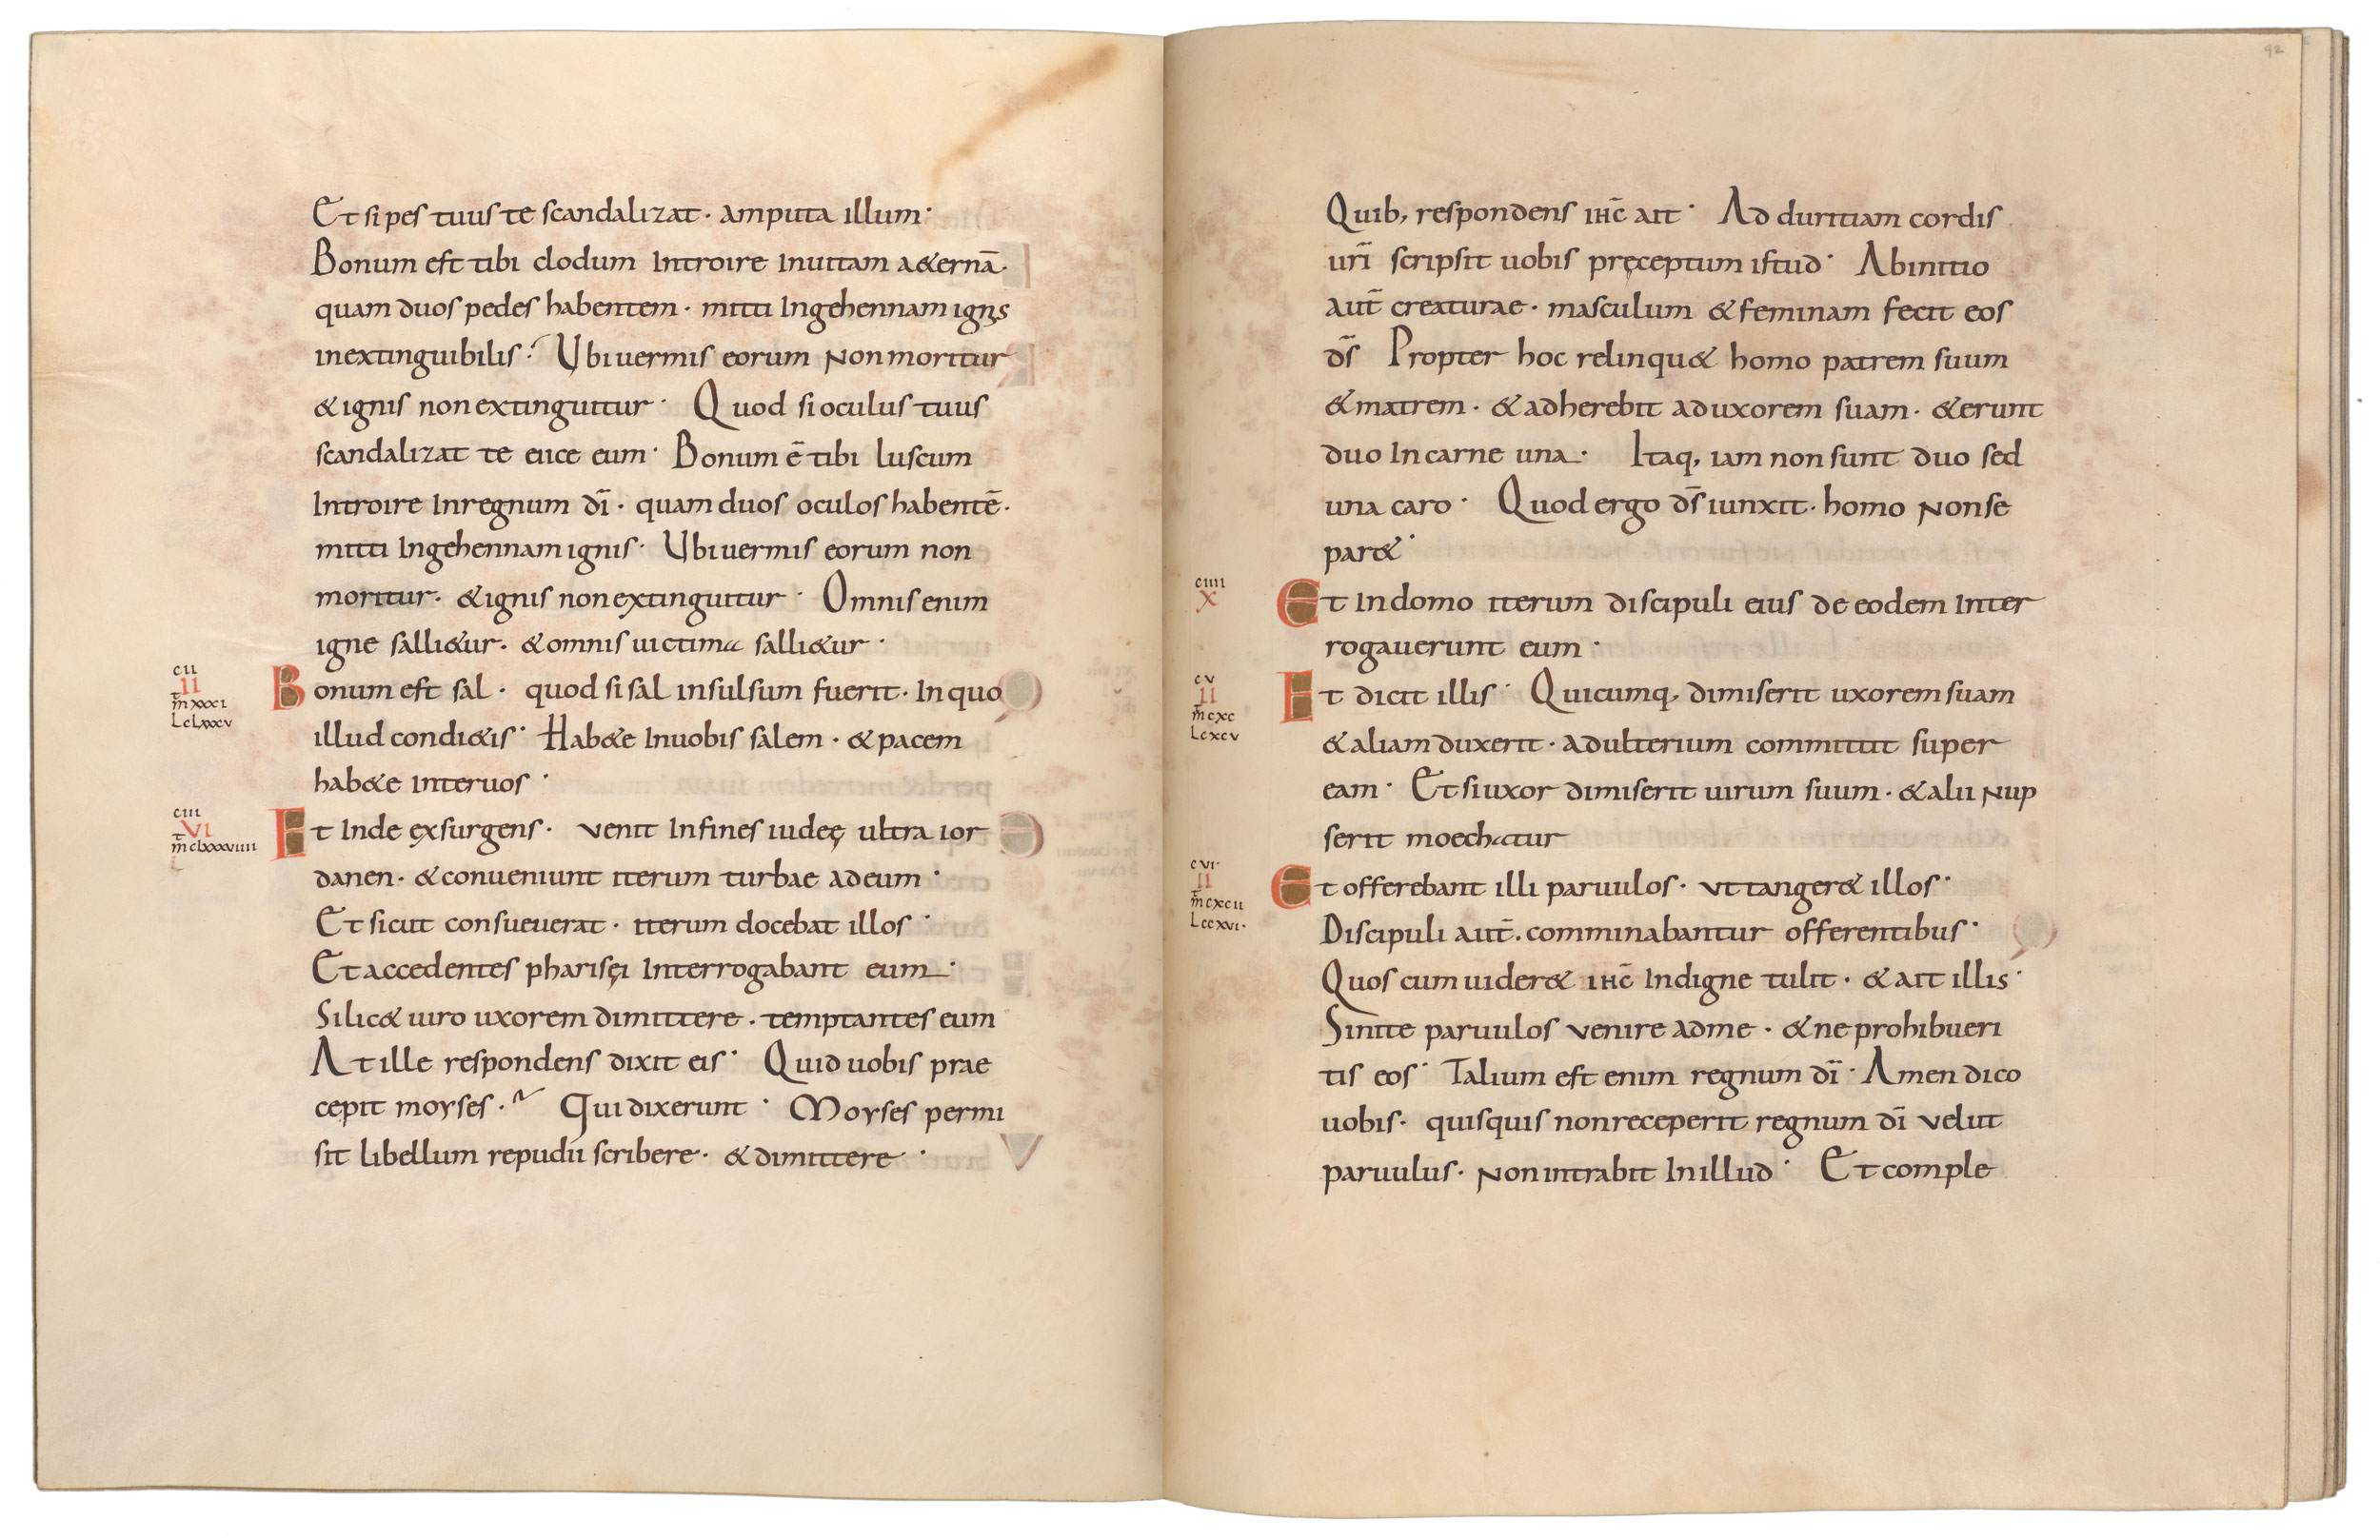 Et si pes tuus te scandalizat · amputa illum ·
Bonum est tibi clodum Introire Inuitam a&ernā ·
quam duos pedes habentem · mitti Ingehennam ignis
inextinguibilis · Ubi uermis eorum Non moritur
& ignis non extinguitur · Quod si oculus tuus
scandalizat te eiice eum · Bonum ē tibi luscum
Introire Inregnum dī · quam duos oculos habentē ·
mitti Ingehennam ignis · Ubi uermis eorum non
moritur · & ignis non extinguitur · Omnis enim
igne salli&ur · & omnis uictima salli&ur ·
cii
II
m xxxi
L clxxxv
Bonum est sal · quod si sal insulsum fuerit · In quo
illud condi&is · Hab&e Inuobis salem · & pacem
hab&e Interuos ·
ciii
VI
m clxxxviiii
L
Et Inde exsurgens · venit Infines iudeę ultra ior
danen · & conueniunt iterum turbae ad eum ·
Et sicut consueuerat · iterum docebat illos ·
Et accedentes pharisęi Interrogabant eum ·
Si lic& uiro uxorem dimittere · temptantes eum
At ille respondens dixit eis · Quid uobis prae
cepit moyses · Qui dixerunt · Moyses permi
sit libellum repudii scribere · & dimittere ·
42
Quib, respondens ihc̄ ait · Ad duritiam cordis
urī scripsit uobis pręceptum istud · Ab initio
aut̄ creaturae · masculum & feminam fecit eos
d̄s Propter hoc relinqu& homo patrem suum
& matrem · & adherebit ad uxorem suam · & erunt
duo In carne una · Itaq, iam non sunt duo sed
una caro · Quod ergo d̄s iunxit · homo Non se
par& ·
ciiii
X
Et In domo iterum discipuli eius de eodem Inter
rogauerunt eum ·
cv
II
m cxc
L cxcv
Et dicit illis · Quicumq, dimiserit uxorem suam
& aliam duxerit · adulterium committit super
eam · Et si uxor dimiserit uirum suum · & alii Nup
serit moechatur
cvi ·
II
m cxcii
L ccxvi ·
Et offerebant illi paruulos · ut tanger& illos ·
Discipuli aut̄ · comminabantur offerentibus ·
Quos cum uider& ihc̄ Indigne tulit · & ait illis ·
Sinite paruulos venire ad me · & ne prohibueri
tis eos · Talium est enim regnum dī · Amen dico
uobis · quisquis non receperit regnum dī velut
paruulus · Non intrabit In illud · Et comple